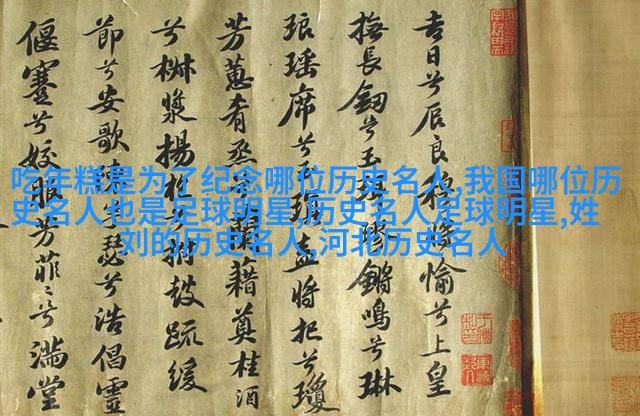 吉日兮辰良穆將愉兮上皇
撫長劒兮玉珥璆鏘鳴兮琳
琅瑶席兮玉瑱盍將把兮瓊
芳蕙肴烝兮蘭藉奠桂酒
兮椒漿揚枹兮拊鼓疏緩
節兮安歌陳竽瑟兮浩倡靈
偃蹇兮姣服芳菲〻兮滿堂
吃年糕是为了纪念哪位历史名人,我国哪位历
史名人也是足球明星,历史名人足球明星,姓
刘的历史名人,河北历史名人